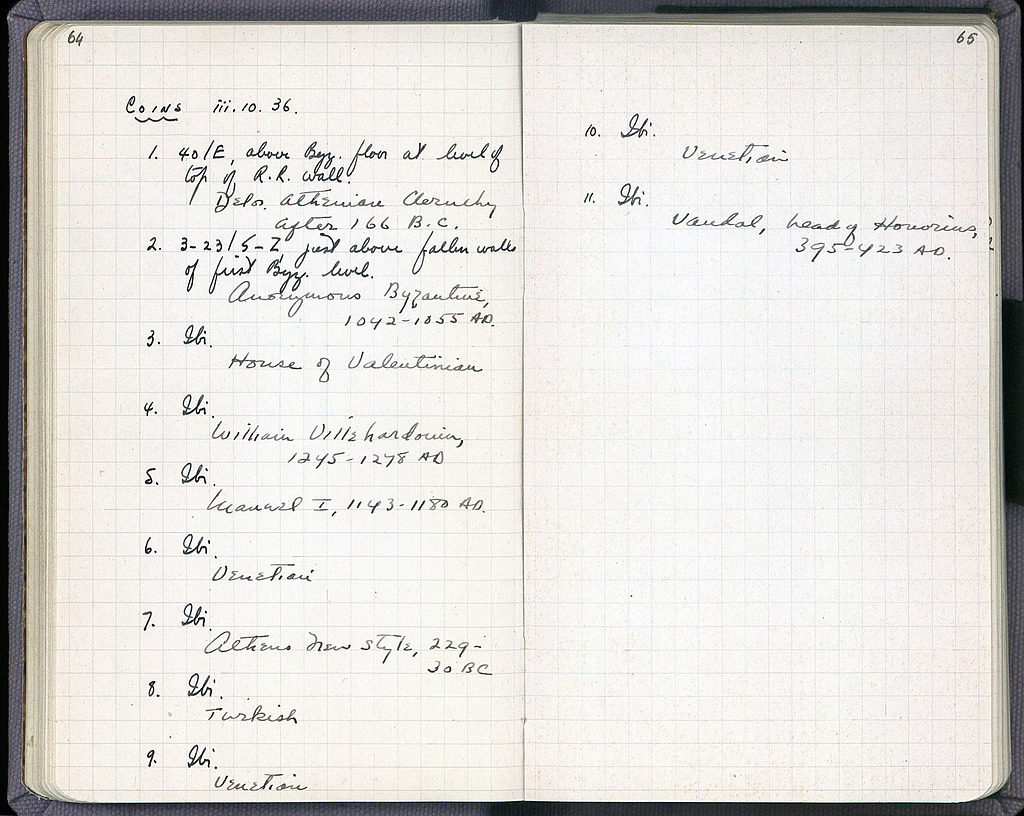 64
Coins iii.10.36.
1. 40/E, above Byz. floor at level of
top of R.R. wall.
Delos. Athenian Cleruchy
after 166 B.C.
2. 3-23/5-Z, just above fallen walls
of first Byz. level.
Anonymous Byzantine,
1042-1055 AD.
3. Ibi.
House of Valentinian
4. Ibi.
William Villehardouin,
1245-1278 AD
5. Ibi.
Manuel I, 1143-1180 AD.
6. Ibi.
Venetian
7. Ibi.
Athens New Style, 229-
30 BC
8. Ibi.
Turkish
9. Ibi.
Venetian
65
10. Ibi.
Venetian
11. Ibi.
Vandal, head of Honorius,
395-423 AD.